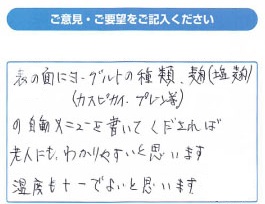 ご意見・ご要望をご記入ください
表の面にヨーグルトの種類、麹(塩麹)
(カスピカイ、プレーン等)
の自動メニューを書いてくだされば
老人にも、わかりやすいと思います
温度も+−でよいと思います